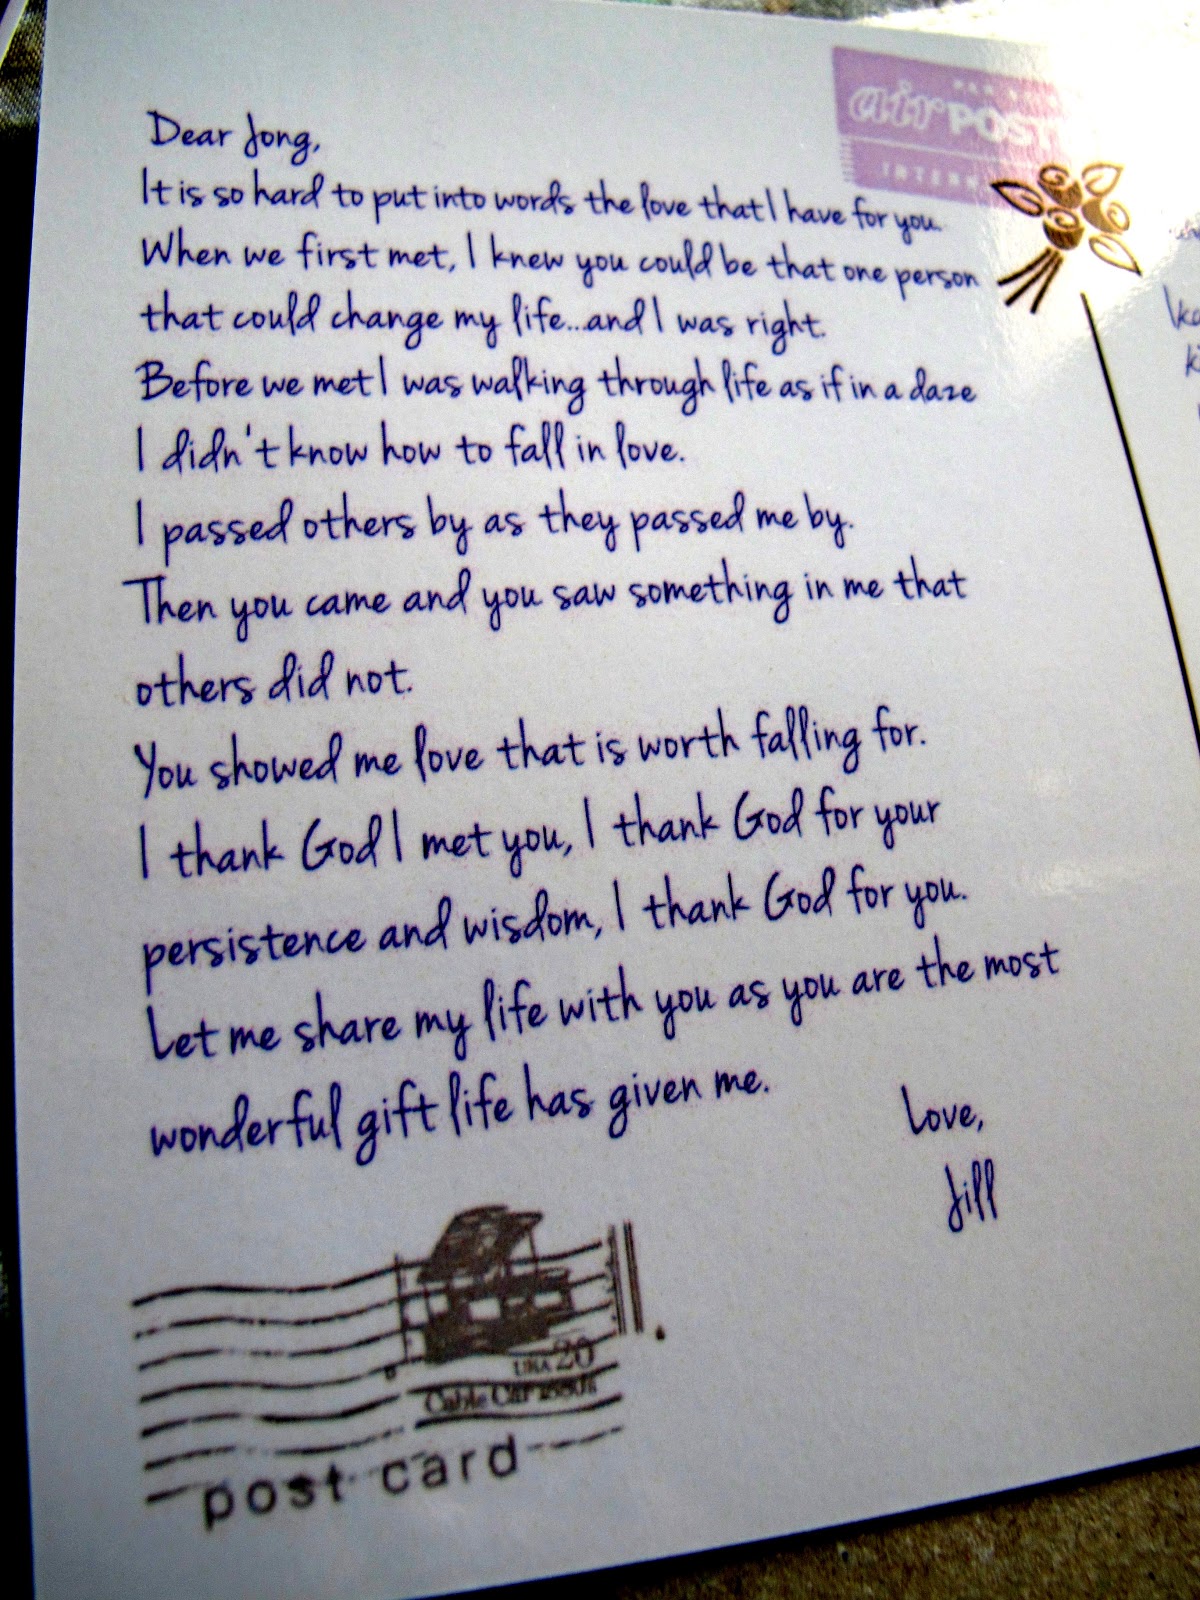 air POST
Dear Jong,
It is so hard to put into words the love that I have for you.
When we first met, I knew you could be that one person
that could change my life...and I was right.
Before we met I was walking through life as if in a daze
I didn't know how to fall in love.
I passed others by as they passed me by.
Then you came and you saw something in me that
others did not.
You showed me love that is worth falling for.
I thank God I met you, I thank God for your
persistence and wisdom, I thank God for you.
Let me share my life with you as you are the most
wonderful gift life has given me.
Love,
Jill
USA 20
Cable Car 1880s
post card